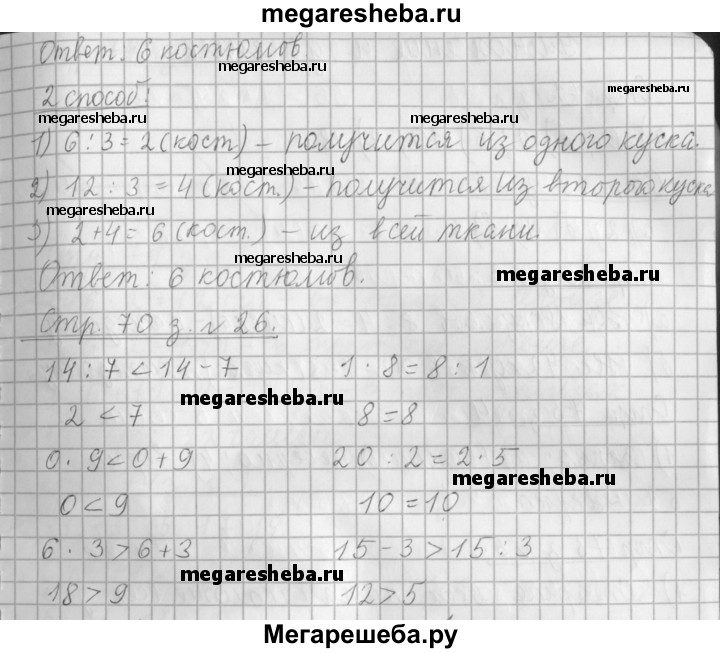 megaresheba.ru
Ответ: 6 костюмов.
megaresheba.ru
2 способ:
megaresheba.ru
megaresheba.ru megaresheba.ru
1) 6 : 3 = 2 (кост.) – получится из одного куска.
megaresheba.ru
2) 12 : 3 = 4 (кост.) – получится из второго куска
megaresheba.ru
3) 2 + 4 = 6 (кост.) – из всей ткани.
megaresheba.ru
Ответ: 6 костюмов.
megaresheba.ru
Стр. 70 з. № 26.
14 : 7 < 14 - 7 1 · 8 = 8 : 1
megaresheba.ru
2 < 7 8 = 8
0 · 9 < 0 + 9 20 : 2 = 2 · 5
megaresheba.ru
0 < 9 10 = 10
6 · 3 > 6 + 3 15 - 3 > 15 : 3
megaresheba.ru
18 > 9 12 > 5
Мегарешеба.ру